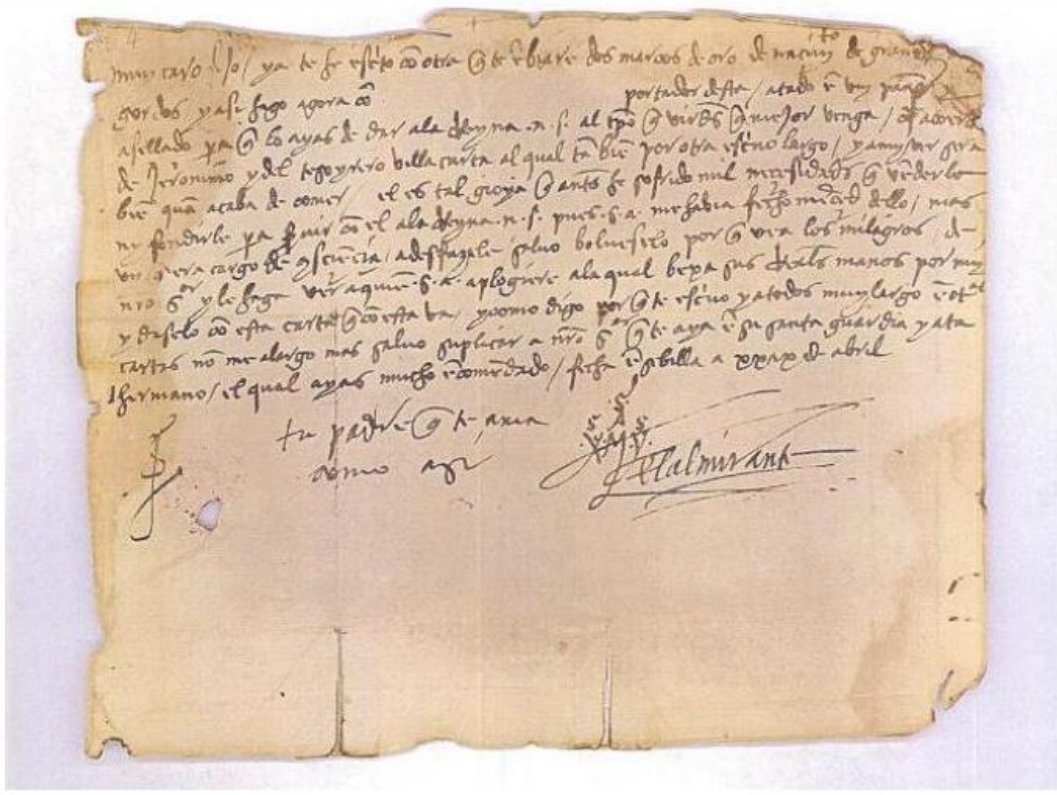 muy caro fijo / ya te he esc̃to cõ otra q̃ te ẽbiare dos marcos de oro de nacimjto de granos
gordos y asi hago agora cõ portador desta / atado ẽ vn paño y
asellado pa q̃ lo ayas de dar ala Reyna .n.s. al tpõ q̃ vierdẽs q̃ mejor venga / cõ acuerdo
de Jeronimo y del tesoyrero villa curta al qual tãbiẽ por otra escrivo largo / y a my ver sera
biẽ quãdo acaba de comer el es tal gioya q̃ antẽs he sofrido mil necesidadẽs q̃ vẽderlo
ne fondirle pa servir cõ el ala Reyna .n.s. pues .s.a. me habia fecho merced dello / mas
vn era cargo de cõscẽcia / a desffazele salvo bolverselo por q̃ vea los milagros de
nro sor y le haga ver a quien .s.a. aplogiere ala qual bexa sus Reals manos por my
y daselo cõ esta carta q̃ cõ esta va / y como digo por q̃ te escrivo y a todos muy largo ẽ otras
cartas nõ me alargo mas salvo suplicar a nro sor q̃ te aya ẽ su santa guardia y a ta
hermano / el qual ayas mucho ẽcomẽdado / fecha ẽ sebilla a xxix de abril
tu padre q̃ te ama
como asi
.S.
.S. A .S.
X M Y
El almirante